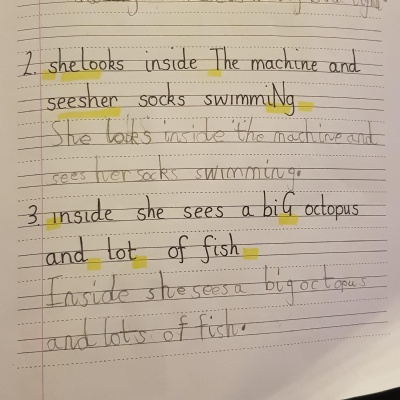 2. shelooks inside The machine and
seesher socks swimmiNg
She looks inside the machine and
sees her socks swimming.
3. inside she sees a biG octopus
and lot of fish
Inside she sees a big octopus
and lots of fish.